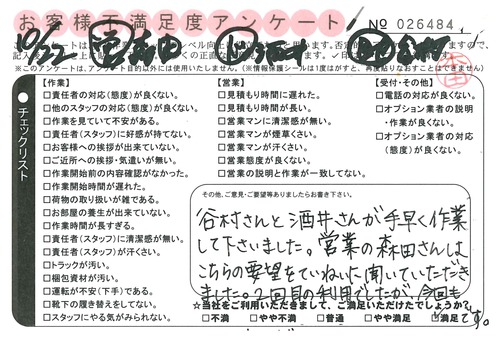 お客様不満足度アンケート
No 026484
10/22
※このアンケートは、アンケート目的以外には使用いたしません。(※情報保護シールは1度はがすと、再度貼りなおすことはできません)
チェックリスト
【作業】
□責任者の対応(態度)が良くない。
□他のスタッフの対応(態度)が良くない。
□作業を見ていて不安がある。
□責任者(スタッフ)に好感が持てない。
□お客様への挨拶が出来ていない。
□ご近所への挨拶・気遣いが無い。
□作業開始前の内容確認がなかった。
□作業開始時間が遅れた。
□荷物の取り扱いが雑である。
□お部屋の養生が出来ていない。
□作業時間が長すぎる。
□責任者(スタッフ)に清潔感が無い。
□責任者(スタッフ)が汗くさい。
□トラックが汚い。
□梱包資材が汚い。
□運転が不安(下手)である。
□靴下の履き替えをしてない。
□スタッフにやる気がみられない。
【営業】
□見積もり時間に遅れた。
□見積もり時間が長い。
□営業マンに清潔感が無い。
□営業マンが煙草くさい。
□営業マンが汗くさい。
□営業態度が良くない。
□営業の説明と作業が一致してない。
【受付・その他】
□電話の対応が良くない。
□オプション業者の説明
・作業が良くない。
□オプション業者の対応
(態度)が良くない。
その他、ご意見・ご要望等ありましたらお書き下さい。
谷村さんと酒井さんが手早く作業
して下さいました。営業の森田さんは
こちらの要望をていねいに聞いていただき
ました。2回目の利用でしたが、今回も
☆当社をご利用いただきまして、ご満足いただけたでしょうか?
□不満 □やや不満 □普通 □やや満足 □満足です。